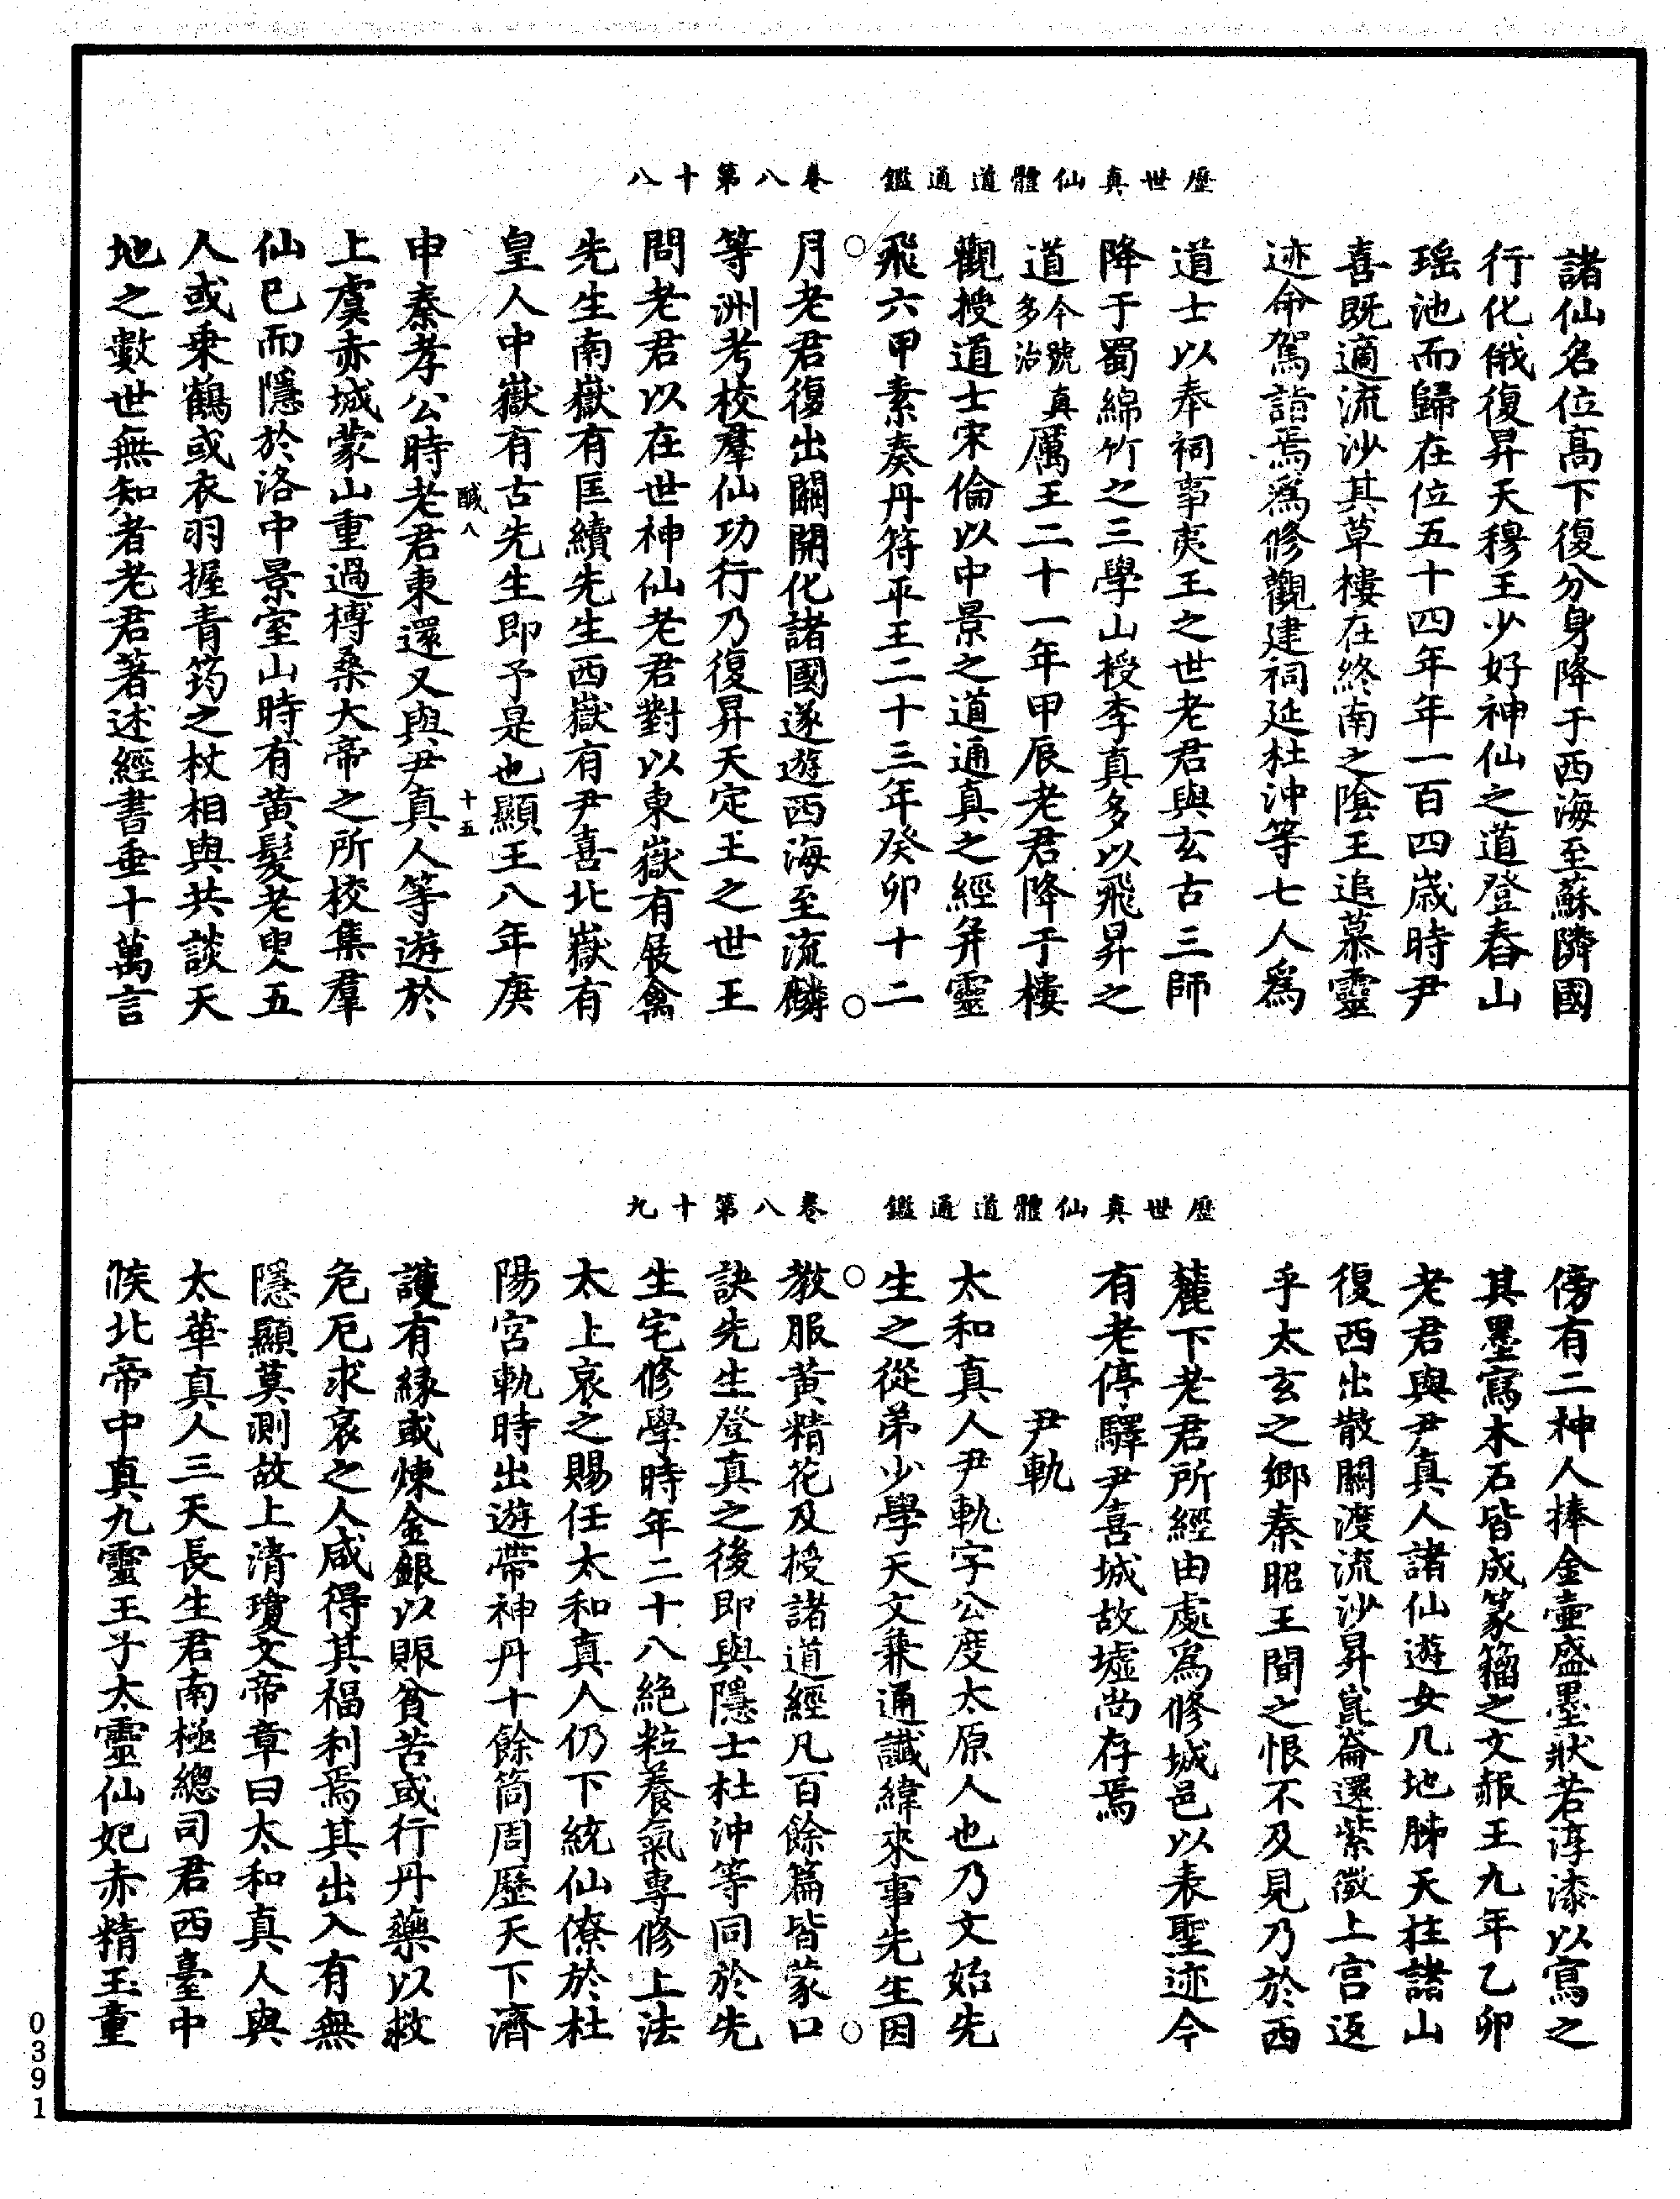 歷世真仙體道通鑑　卷八第十八
諸仙名位高下復分身降于西海至蘇隣國
行化俄復昇天穆王少好神仙之道登舂山
瑶池而歸在位五十四年年一百四歲時尹
喜既適流沙其草樓在終南之陰王追慕靈
迹命駕詣焉爲修觀建祠延杜沖等七人爲
道士以奉祠事夷王之世老君與玄古三師
降于蜀綿竹之三學山授李真多以飛昇之
道今號真多治厲王二十一年甲辰老君降于樓
觀授道士宋倫以中景之道通真之經并靈
飛六甲素奏丹符平王二十三年癸卯十二
月老君復出關開化諸國遂遊西海至流麟
等洲考校羣仙功行乃復昇天定王之世王
問老君以在世神仙老君對以東嶽有展禽
先生南嶽有匡續先生西嶽有尹喜北嶽有
皇人中嶽有古先生即予是也顯王八年庚
醎八　十五
申秦孝公時老君東還又與尹真人等遊於
上虞赤城蒙山重過榑桑大帝之所校集羣
仙已而隱於洛中景室山時有黄髮老叟五
人或乘鶴或衣羽握青筠之杖相與共談天
地之數世無知者老君著述經書垂十萬言
歷世真仙體道通鑑　卷八第十九
傍有二神人捧金壷盛墨狀若淳漆以寫之
其墨寫木石皆成篆籀之文赧王九年乙卯
老君與尹真人諸仙遊女几地肺天柱諸山
復西出散關渡流沙昇崑崙還紫微上宫返
乎太玄之鄉秦昭王聞之恨不及見乃於西
麓下老君所經由處爲修城邑以表聖迹今
有老停驛尹喜城故墟尚存焉
尹軌
太和真人尹軌字公度太原人也乃文始先
生之從弟少學天文兼通讖緯來事先生因
教服黄精花及授諸道經凡百餘篇皆蒙口
訣先生登真之後即與隱士杜沖等同於先
生宅修學時年二十八絶粒養氣專修上法
太上哀之賜任太和真人仍下統仙僚於杜
陽宮軌時出遊帶神丹十餘筒周歷天下濟
護有縁或煉金銀以賑貧苦或行丹藥以救
危厄求哀之人咸得其福利焉其出入有無
隱顯莫測故上清瓊文帝章曰太和真人與
太華真人三天長生君南極總司君西臺中
候北帝中真九靈王子太靈仙妃赤精玉童
0391